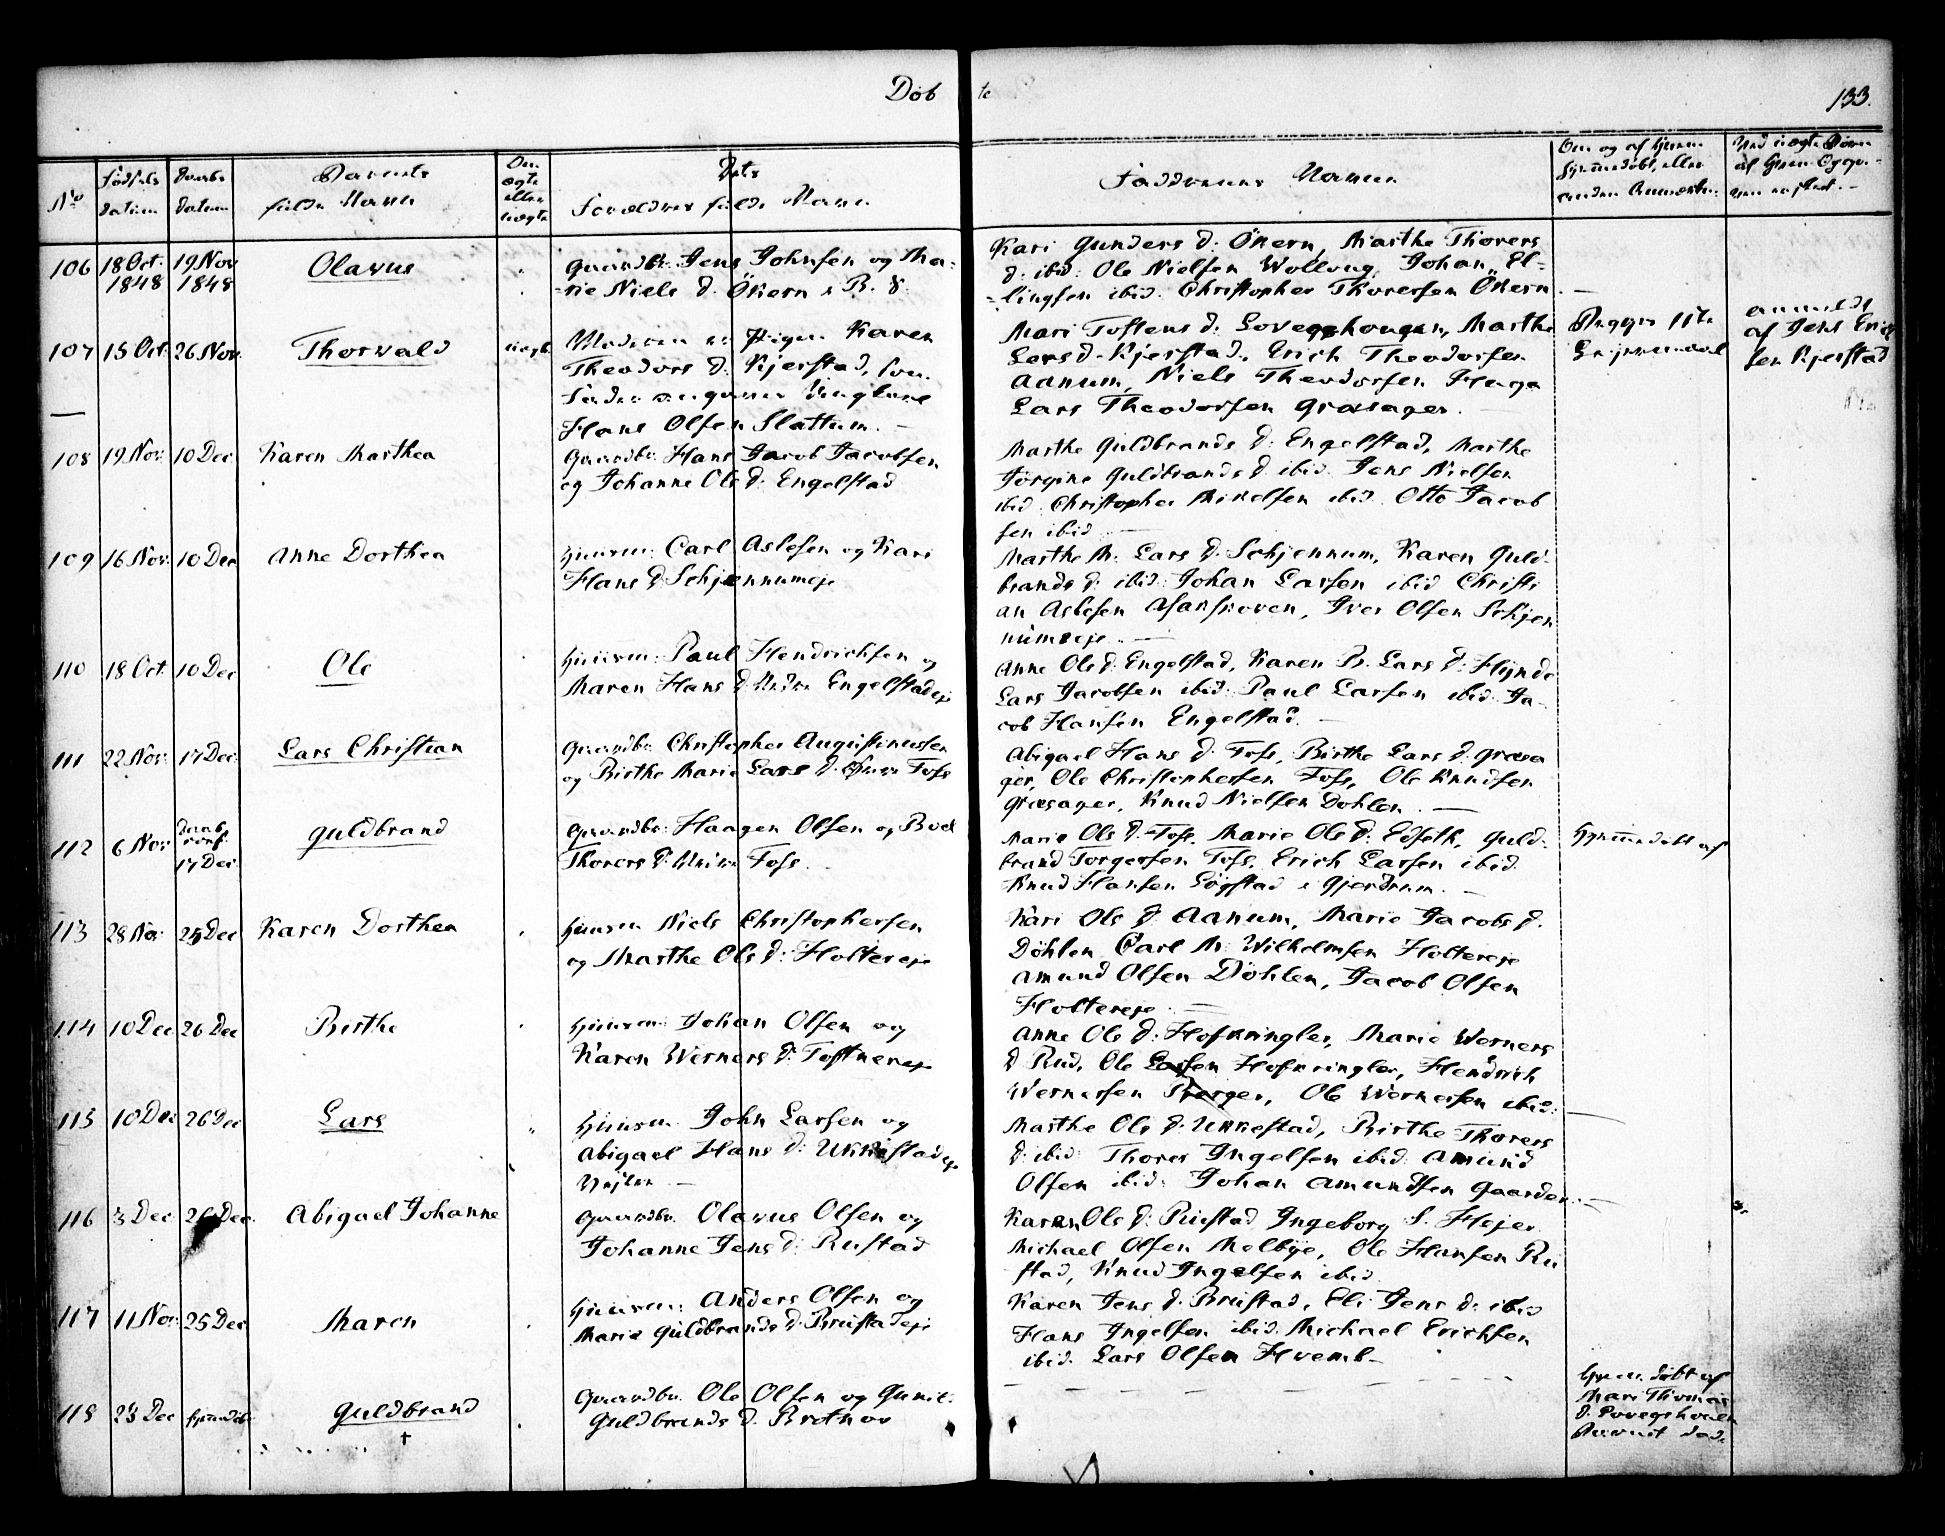 Døbte
133.
No
Fødsels datum
Daabs datum
Barnets fulde Navn
Om ægte eller uægte
Forældres fulde Navn
Faddernes Navne
106 18 Oct. 1848 19 Nov 1848 Olavus
Gaardbr. Jens Johnsen og Ma-
rie Niels d. Økern i B. S.
Kari Gunders d: Økern, Marthe Thorers
d: ibid: Ole Nielsen Wolloug, Johan El-
lingsen ibid. Christopher Thoresen Økern
107 15 Oct. 26 Nov. Thorvald uægte
Moderen er Pigen Karen
Theodors d. Kjerstad, som
Fader angiver Ungkarl
Hans Olsen Slattum.
Mari Tostens d: Lovegshougen, Marthe
Lars d. Kjerstad, Erich Theodorsen
Aanum, Niels Theodorsen Haga
Lars Theodorsen Græsager.
anmeldt
af Jens Erich
sen Kjerstad
108 19 Nov. 10 Dec Karen Marthea
Gaardbr. Hans Jacob Jacobsen
og Johanne Ols d: Engelstad
Marthe Guldbrands d: Engelstad, Marthe
Jørgine Guldbrands d. ibid. Jens Nielsen
ibid. Christopher Mikelsen ibid. Otto Jacob
sen ibid.
109 16 Nov. 10 Dec Anne Dorthea
Huusm: Carl Aslesen og Kari
Hans d: Schjennumeje
Marthe M: Lars d. Schjennum, Karen Guld-
brands d: ibid: Johan Larsen ibid Christi
an Aslesen Asakskoven, Iver Olsen Schjen
numseje.
110 18 Oct 10 Dec Ole
Huusm: Paul Hendrichsen og
Maren Hans d: Nedre Engelstadeje
Anne Ols d: Engelstad, Karen B. Lars d: Hynde
Lars Jacobsen ibid: Paul Larsen ibid. Ja-
cob Hansen Engelstad.
111 22 Nov. 17 Dec. Lars Christian
Gaardbr. Christopher Augustinussen
og Birthe Marie Lars d. Foss
Abigael Hans d: Foss, Birthe Lars d. Græsa
ger, Ole Christophersen Foss, Ole Knudsen
Græsager, Knud Nielsen Dohlen.
112 6 Nov. daab conf. 17 Dec. Guldbrand
Gaardbr. Haagen Olsen og Boel
Thorers d: Foss.
Marie Ols d. Foss, Marie Ols d: Edseth, Guld-
brand Torgersen Foss, Erich Larsen ibid.
Knud Hansen Løgstad i Gjerdrum.
Hjemmedøbt af
113 28 Nov. 25 Dec Karen Dorthea
Huusm Niels Christophersen
og Marthe Ols d: Holtereje
Kari Ols d. Aanum, Marie Jacobs d.
Döhlen Carl M: Wilhelmsen Holtereje
Amund Olsen Döhlen, Jacob Olsen
Holtereje.
114 10 Dec 26 Dec Birthe
Huusm: Johan Olsen og
Karen Werners d: Toftnereje
Anne Ols d: Hofkringler, Marie Werners
d. Rud, Ole Larsen Hofkringler, Hendrich
Wernersen Berger, Ole Wernersen ibid:
115 10 Dec 26 Dec Lars
Huusm: John Larsen og
Abigael Hans d: Ukkestadeje
Marthe Ols d. Ukkestad, Birthe Thorers
d: ibid: Thorer Ingelsen ibid: Amund
Olsen ibid: Johan Amundsen Gaarder.
116 3 Dec 26 Dec. Abigael Johanne
Gaardbr. Olavus Olsen og
Johanne Jens d: Rustad
Karen Ols d: Rustad Ingeborg S. Hejer
Michael Olsen Melbye, Ole Hansen Ru
stad, Knud Ingelsen ibid.
117 11 Nov. 25 Dec. Maren
Huusm: Anders Olsen og
Marie Guldbrands d. Brustadeje
Karen Jens d. Brustad, Eli Jens d: ibid
Hans Ingelsen ibid. Michael Erichsen
ibid. Lars Olsen Hveml
118 23 Dec Guldbrand
Gaardbr. Ole Olsen og Gunil
Guldbrands d. Brotnov
Hjem. døbt af
Mari Thomas
d.
Barnet død.